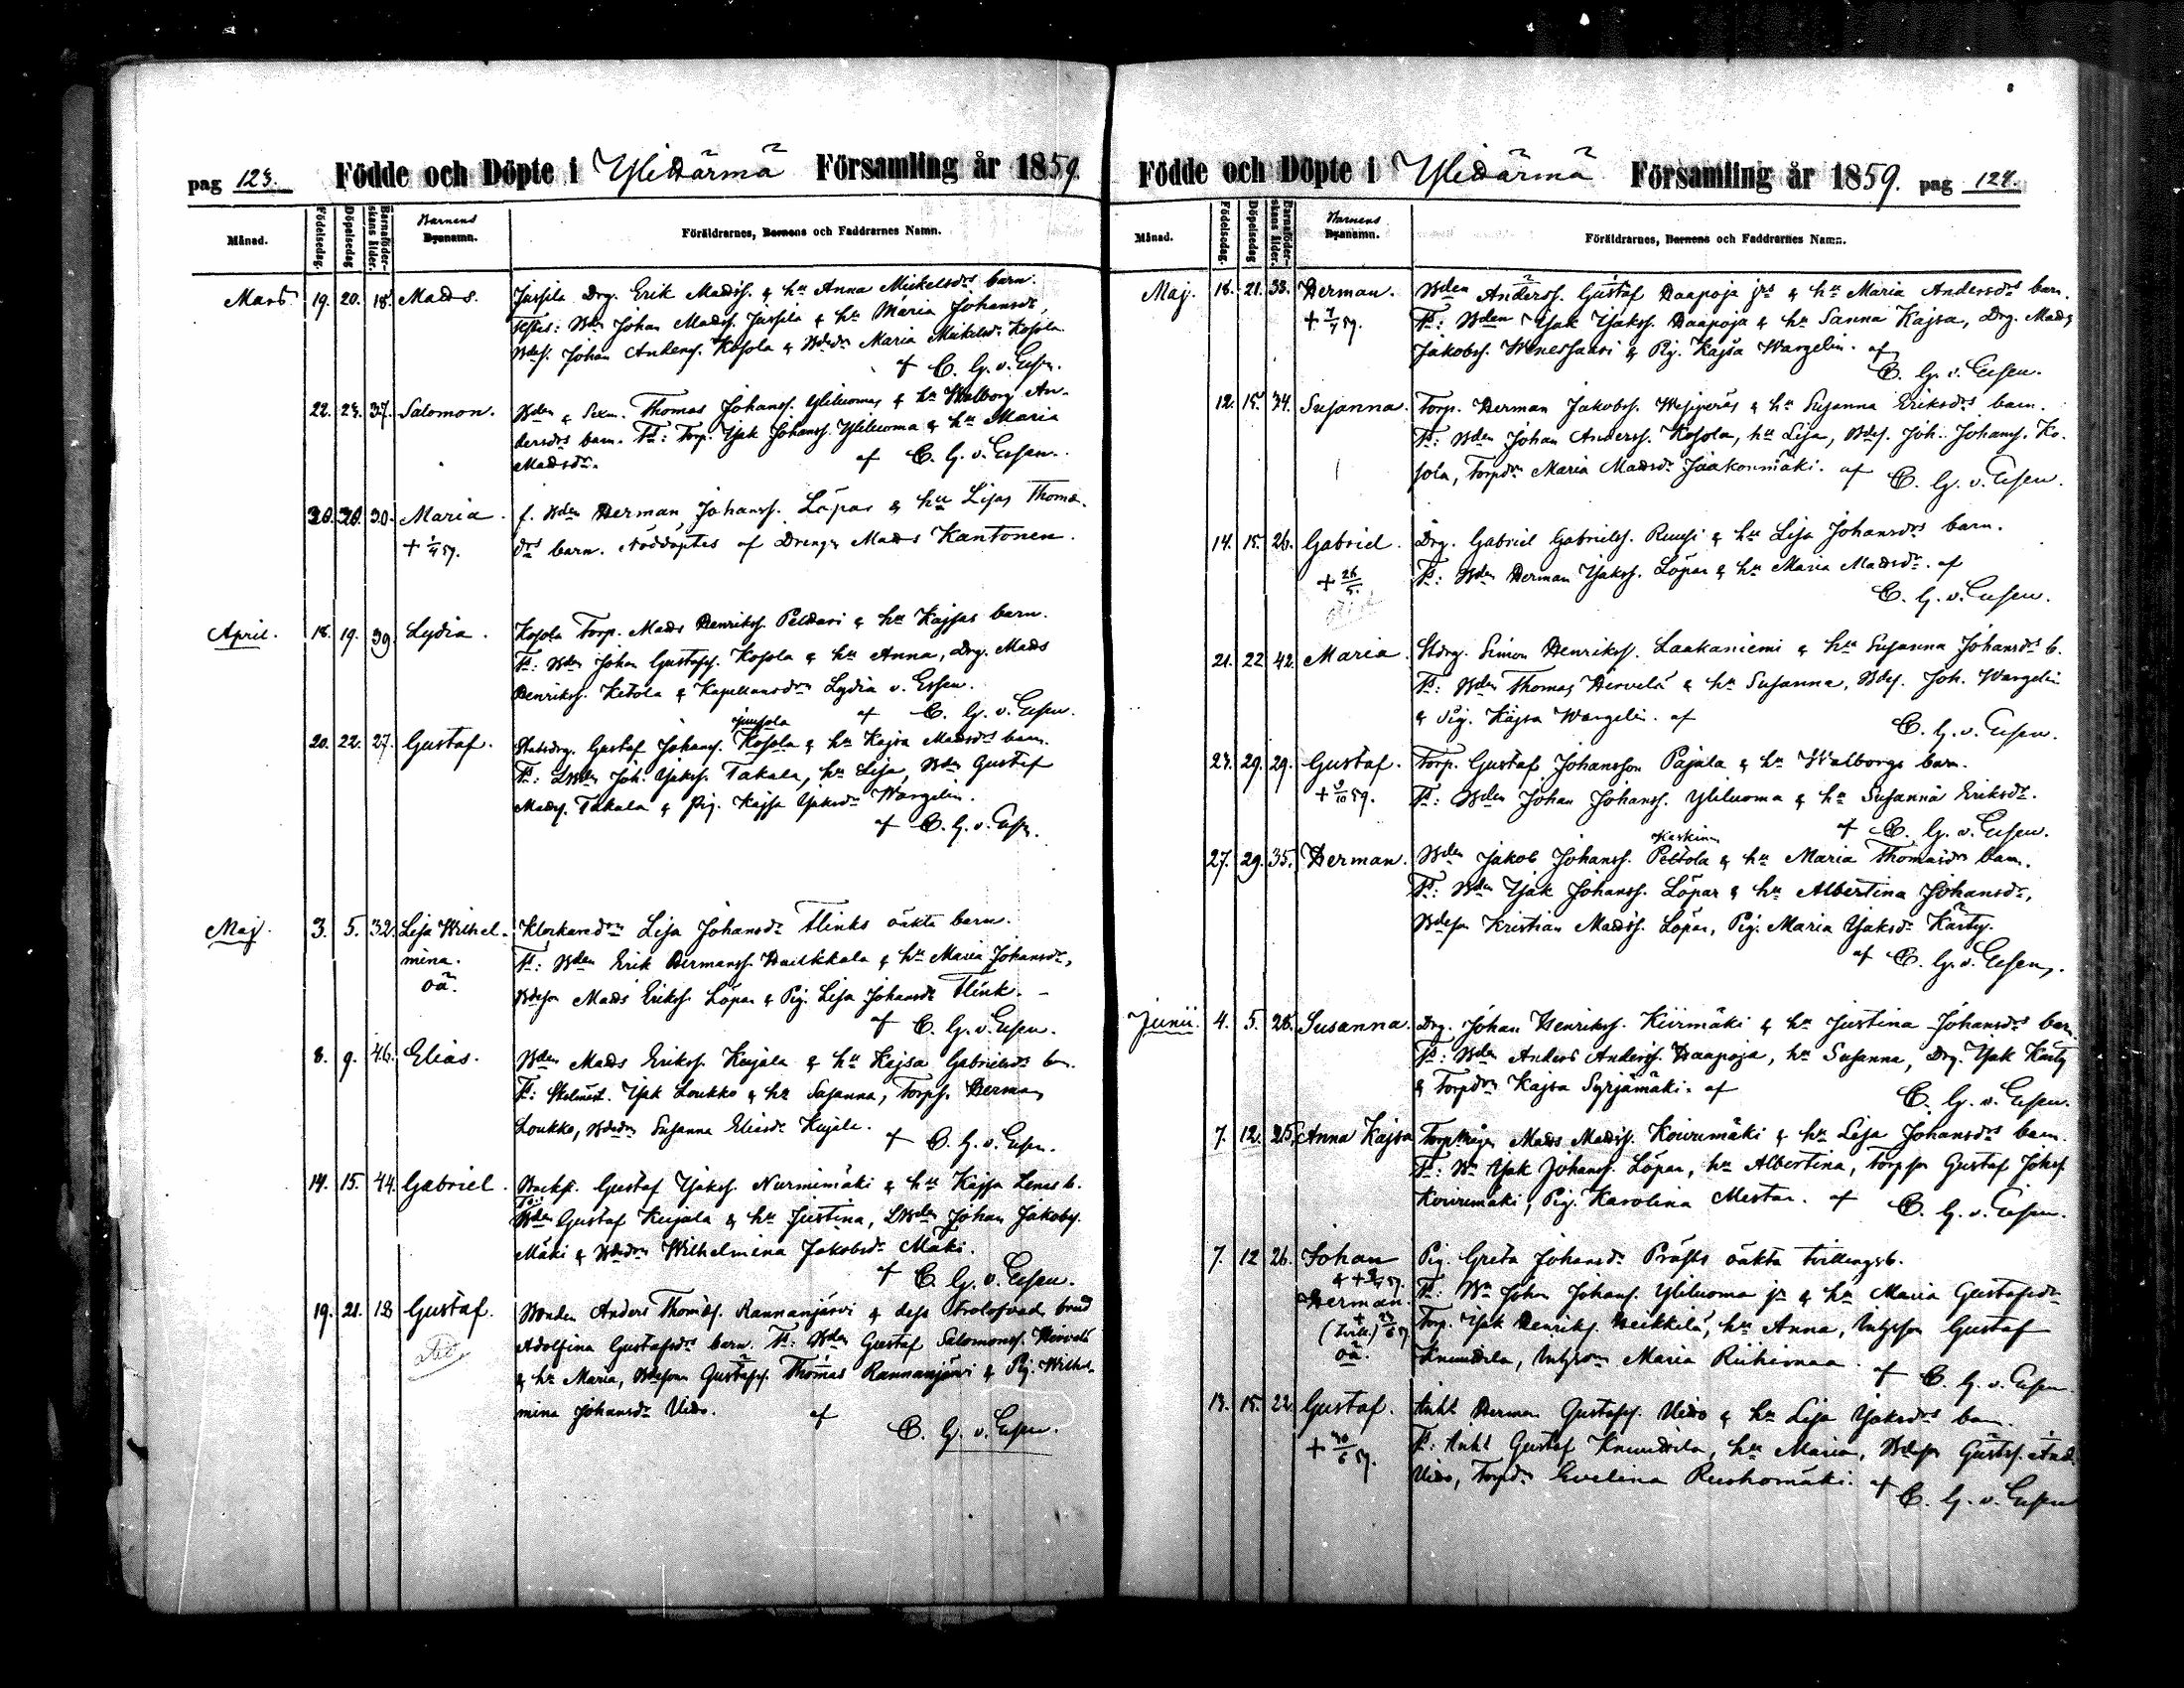 pag 123. Födde och Döpte i Ylihärmä Församling år 1859.
Månad. Födelsedag. Döpelsedag Barnaföderskans ålder. Barnens Byanamn. Föräldrarnes, Barnens och Faddrarnes Namn.
Mars. 19. 20. 18. Mads. Jussila Drg. Erik Madss. & hu Anna Mickelsdrs barn.
Testes: Bdn Johan Madss. Jussila & hu Maria Johansdr
Bdes. Johan Anderss. Kosola & Maria Mickelsdr Kosola.
af C. G. v. Essen.
22. 23. 37. Salomon. Bden & Sexm. Thomas Johanss. Yliluoma & hu Walborg An-
dersdrs barn. Ts: Torp. Isak Johanss. Yliluoma & hu Maria
Madsdr. af C. G. v. Essen.
30. Maria. f. Bden Herman Johanss. Löpar & hu Lisas Thoms-
+ 1/4 59. drs barn. Nöddöptes af Drengen Mads Kantonen.
April. 18. 19. 39. Lydia. Kosola Torp. Mads Henrikss. Peldari & hu Kajsas barn.
Ts: Bden Johan Gustafss. Kosola & hu Anna, Drg. Mads
Henrikss. Ketola & Kapellansdrn Lydia v. Essen.
af C. G. v. Essen.
20. 22. 27. Gustaf. Statsdrg. Gustaf Johanss. Kosola & hu Kajsa Madsdrs barn.
Ts: LBden Joh. Isakss. Takala, hu Lisa, Bden Gustaf
Madss. Takala & Pig. Kajsa Isaksdr Wargelin.
af C. G. v. Essen.
Maj. 3. 5. 32. Lisa Wilhel- Klockaredrn Lisa Johansdr Flinks oäkta barn.
mina. Ts: Bden Erik Hermanss. Huikkala & hu Maria Johansdr,
oä. Bdeson Mads Erikss. Löpar & Pig. Lisa Johansdr Flink.
af C. G. v. Essen.
8. 9. 46. Elias. Bden Mads Erikss. Kujala & hu Kajsa Gabrielsdrs bn.
Ts: Skolmest. Isak Loukko & hu Susanna, Torps. Herman
Loukko, Bdedrn Susanna Eliasdr Kujala. af C. G. v. Essen.
14. 15. 44. Gabriel. Backst. Gustaf Isakss. Nurmimäki & hu Kajsa Lenas b.
Ts:
Bden Gustaf Kujala & hu Justina, LBden Johan Jakobss.
Mäki & Bdedrn Wilhelmina Jakobsdr Mäki.
af C. G. v. Essen.
19. 21. 18 Gustaf. Bonden Anders Thomass. Rannanjärvi & dess trolofvade brud
Adolfina Gustafsdrs barn. Ts: Bden Gustaf Salomonss. Hervelä
& hu Maria, Bdesonen Gustafss. Thomas Rannanjärvi & Pig. Wilhel-
mina Johansdr Uido. af
C. G. v. Essen.
Födde och Döpte i Ylihärmä Församling år 1859. pag 124.
Månad. Födelsedag. Döpelsedag Barnaföderskans ålder. Barnens Byanamn. Föräldrarnes, Barnens och Faddrarnes Namn.
Maj. 18. 21. 33. Herman. Bden Anderss. Gustaf Haapoja jrs & hu Maria Andersdrs barn.
Ts: Bden Isak Isakss. Haapoja & hu Sanna Kajsa, Drg. Mads
Jakobss. Wenessaari & Pig. Kajsa Wargelin. af
C. G. v. Essen.
12. 15. 34. Susanna. Torp. Herman Jakobss. & hu Susanna Eriksdrs barn.
Ts: Bden Johan Anderss. Kosola, hu Lisa, Bdes. Joh. Johanss. Ko-
sola, Torpdrn Maria Madsdr Jaakonmäki. af C. G. v. Essen.
14. 15. 26. Gabriel. Drg. Gabriel Gabrielss. Ruusi & hu Lisa Johansdrs barn.
+ 26/5. Ts: Bden Herman Isakss. Löpar & hu Maria Madsdr. af
C. G. v. Essen.
21. 22 42. Maria. Stdrg. Simon Henrikss. Laakaniemi & hu Susanna Johansdrs b.
Ts: Bden Thomas Hervelä & hu Susanna, Bdes. Joh. Wargelin
& Pig. Kajsa Wargelin. af C. G. v. Essen.
29. 29. Gustaf. Torp. Gustaf Johansson Pajala & hu Walborgs barn.
+ 9/10 59. Ts: Bden Johan Johanss. Yliluoma & hu Susanna Eriksdr.
af C. G. v. Essen.
Keskinen
27. 29. 35. Herman. Bden Jakob Johanss. Peltola & hu Maria Thomasdrs barn.
Ts: Bden Isak Johanss. Löpar & hu Albertina Johansdr,
Bdeson Kristian Madss. Löpar, Pig. Maria Isaksdr Kärty.
af C. G. v. Essen.
Junii. 4. 5. 28. Susanna. Drg. Johan Henrikss. Kiirmäki & hu Justina Johansdrs barn.
Ts: Bden Anders Anderss. Haapoja, hu Susanna, Drg. Isak Kärty
& Torpdrn Kajsa Syrjämäki. af C. G. v. Essen.
7. 12. 25. Anna Kajsa Torpmågen Mads Madss. Koivumäki & hu Lisa Johansdrs barn.
Ts: Bn Isak Johanss. Löpar, hu Albertina, torpson Gustaf Johss.
Koivumäki, Pig. Karolina Mestar. af C. G. v. Essen.
7. 12 26. Johan Pig. Greta Johansdr Präfts oäkta tvillingsb.
& Herman. Ts: Bn Johan Johanss. Yliluoma jr & hu Maria Gustafsdr
(Tvill.) Torp. Isak Henrikss. Heikkilä, hu Anna, Gustaf
oä. Knuuttila, Maria Riihimaa. af C. G. v. Essen.
13. 15. 22. Gustaf. Inht Herman Gustafss. Uido & hu Lisa Isaksdrs barn.
Ts: Inht Gustaf Knuuttila, hu Maria, Bdeson Gustfs. And.
Uido, Torpdr. Evelina Ruskomäki. af C. G. v. Essen